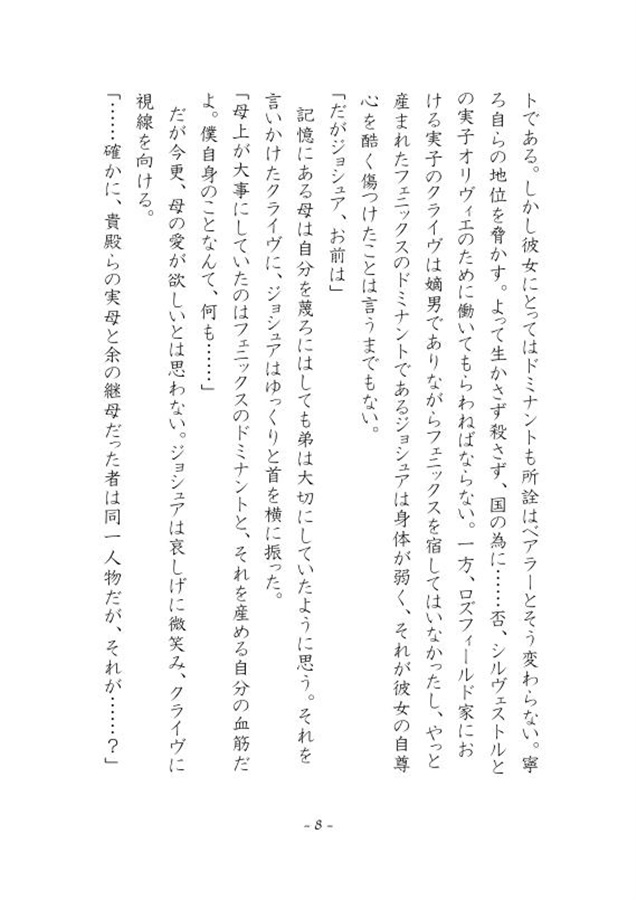 トである。しかし彼女にとってはドミナントも所詮はベアラーとそう変わらない。寧
ろ自らの地位を脅かす。よって生かさず殺さず、国の為に……否、シルヴェストルと
の実子オリヴィエのために働いてもらわねばならない。一方、ロズフィールド家にお
ける実子のクライヴは嫡男でありながらフェニックスを宿してはいなかったし、やっと
産まれたフェニックスのドミナントであるジョシュアは身体が弱く、それが彼女の自尊
心を酷く傷つけたことは言うまでもない。
「だがジョシュア、お前は」
記憶にある母は自分を蔑ろにはしても弟は大切にしていたように思う。それを
言いかけたクライヴに、ジョシュアはゆっくりと首を横に振った。
「母上が大事にしていたのはフェニックスのドミナントと、それを産める自分の血筋だ
よ。僕自身のことなんて、何も……」
だが今更、母の愛が欲しいとは思わない。ジョシュアは哀しげに微笑み、クライヴに
視線を向ける。
「……確かに、貴殿らの実母と余の継母だった者は同一人物だが、それが……？」
- 8 -